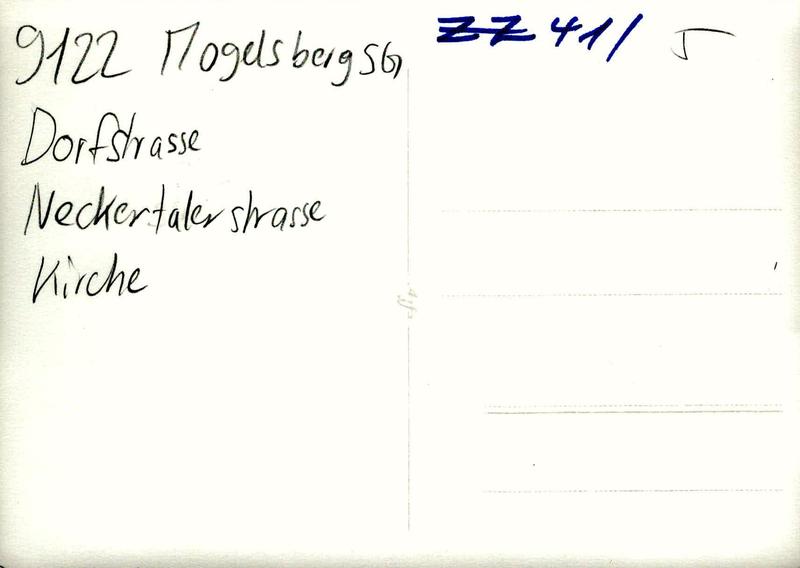 9122 Mogelsberg SG
Dorfstrasse
Neckertalerstrasse
Kirche
ZZ 41/ 5